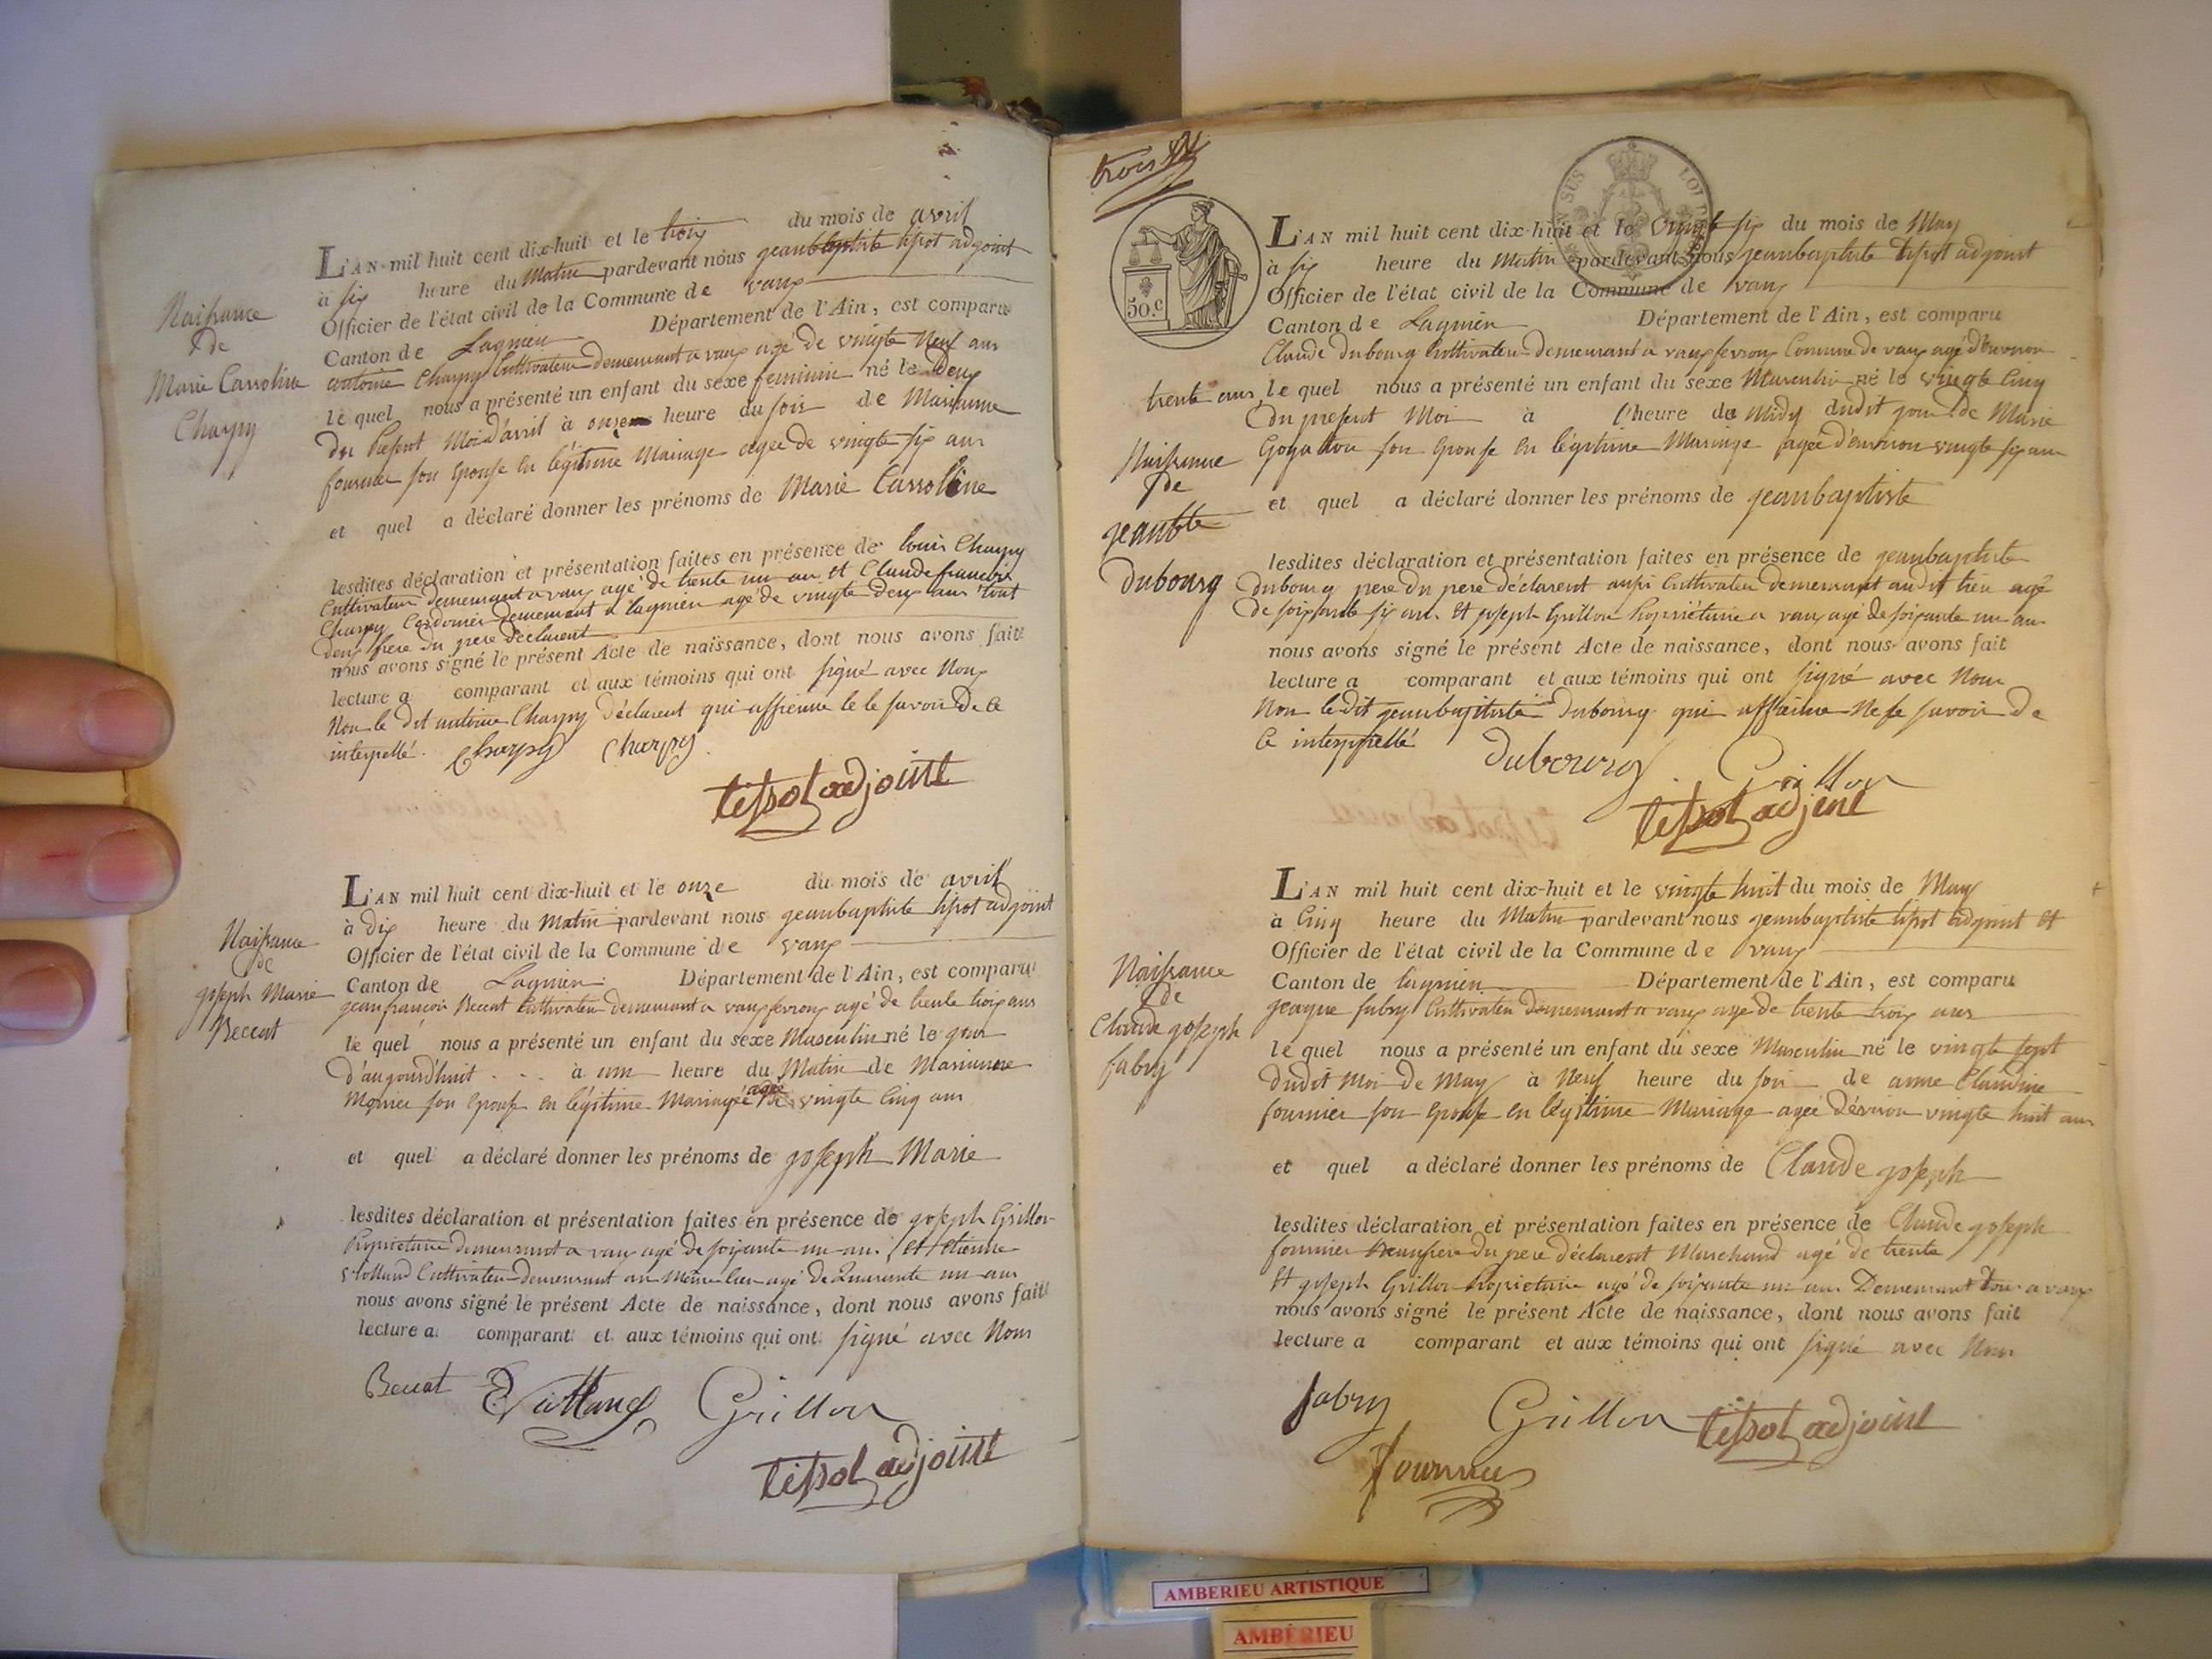 L'AN mil huit cent dix-huit et le trois du mois de avril
à six heure du Matin pardevant nous jeanbaptiste tissot adjoint
Officier de l'état civil de la Commune de vaux
Canton de Lagnieu Département de l'Ain, est comparu
antoine Charpy Cultivateur demeurant a vaux agé de vingte Neuf ans
le quel nous a présenté un enfant du sexe feminin né le Deux
Du Présent Mois d'avril à onze heure du soir de Marianne
fournier son Epouse en légitime Mariage agée de vingte six ans
et quel a déclaré donner les prénoms de Marie Carroline
lesdites déclaration et présentation faites en présence de louis Charpy
Cultivateur demeurant a vaux agé de trente un an et Claude francois
Charpy Cordonier demeurant a lagnieu agé de vingte deux ans tout
deux frere du pere déclarent
nous avons signé le présent Acte de naissance, dont nous avons fait
lecture a comparant et aux témoins qui ont signé avec Nous
Non le dit antoine Charpy déclarent qui affirme le savoir de ce
interpellé. Charpy Charpy
tissot adjoint
Naissance
de
Marie Carroline
Charpy
L'AN mil huit cent dix-huit et le onze du mois de avril
à dix heure du Matin pardevant nous jeanbaptiste tissot adjoint
Officier de l'état civil de la Commune de vaux
Canton de Lagnieu Département de l'Ain, est comparu
jean francois Beccat Cultivateur demeurant a vauxfevroux agé de trente trois ans
le quel nous a présenté un enfant du sexe Masculin né le jour
d'aujourd'huit à un heure du Matin de Marianne
Monier son Epouse en légitime Mariage agée de vingte Cinq ans
et quel a déclaré donner les prénoms de joseph Marie
lesdites déclaration et présentation faites en présence de joseph Grillon
Propriétaire demeurant a vaux agé de soixante un an. Et Etienne
Cultivateur demeurant au Même lieu agé de Quarante un an
nous avons signé le présent Acte de naissance, dont nous avons fait
lecture a comparant et aux témoins qui ont signé avec Nous
Beccat Grillon
tissot adjoint
Naissance
de
joseph Marie
Beccat
trois
50.c
L'AN mil huit cent dix-huit et le vingt six du mois de May
à six heure du Matin pardevant nous jeanbaptiste tissot adjoint
Officier de l'état civil de la Commune de vaux
Canton de Lagnieu Département de l'Ain, est comparu
Claude Dubourg Cultivateur demeurant a vauxfevroux Commune de vaux agé d'environ
trente ans le quel nous a présenté un enfant du sexe Masculin né le vingte Cinq
Du présent Moi à l'heure de Midy dudit jour de Marie
son Epouse en légitime Mariage agée d'environ vingte six an
et quel a déclaré donner les prénoms de jeanbaptiste
lesdites déclaration et présentation faites en présence de jeanbaptiste
Dubourg pere du pere déclarent aussi Cultivateur demeurant audit lieu agé
De soixante six ans. Et joseph Grillon Propriétaire a vaux agé de soixante un an
nous avons signé le présent Acte de naissance, dont nous avons fait
lecture a comparant et aux témoins qui ont signé avec Nous
Non le dit jeanbaptiste Dubourg qui affirme Ne le savoir de
Ce interpellé Dubourg Grillon
tissot adjoint
Naissance
de
jeanbte
Dubourg
L'AN mil huit cent dix-huit et le vingte huit du mois de May
à Cinq heure du Matin pardevant nous jeanbaptiste tissot adjoint et
Officier de l'état civil de la Commune de vaux
Canton de lagnieu Département de l'Ain, est comparu
jeaque fabry Cultivateur demeurant a vaux agé de trente trois ans
le quel nous a présenté un enfant du sexe Masculin né le vingte sept
dudit Moi de May à Neuf heure du soir de anne Claudine
fournier son Epouse en légitime Mariage agée d'environ vingte huit ans
et quel a déclaré donner les prénoms de Claude joseph
lesdites déclaration et présentation faites en présence de Claude joseph
fournier beaufrere du pere déclarent Marchand agé de trente
Et joseph Grillon Propriétaire agé de soixante un ans Demeurant Tous a vaux
nous avons signé le présent Acte de naissance, dont nous avons fait
lecture a comparant et aux témoins qui ont signé avec Nous
fabry Grillon tissot adjoint
fournier
Naissance
de
Claude joseph
fabry
AMBERIEU ARTISTIQUE
AMBÉRIEU